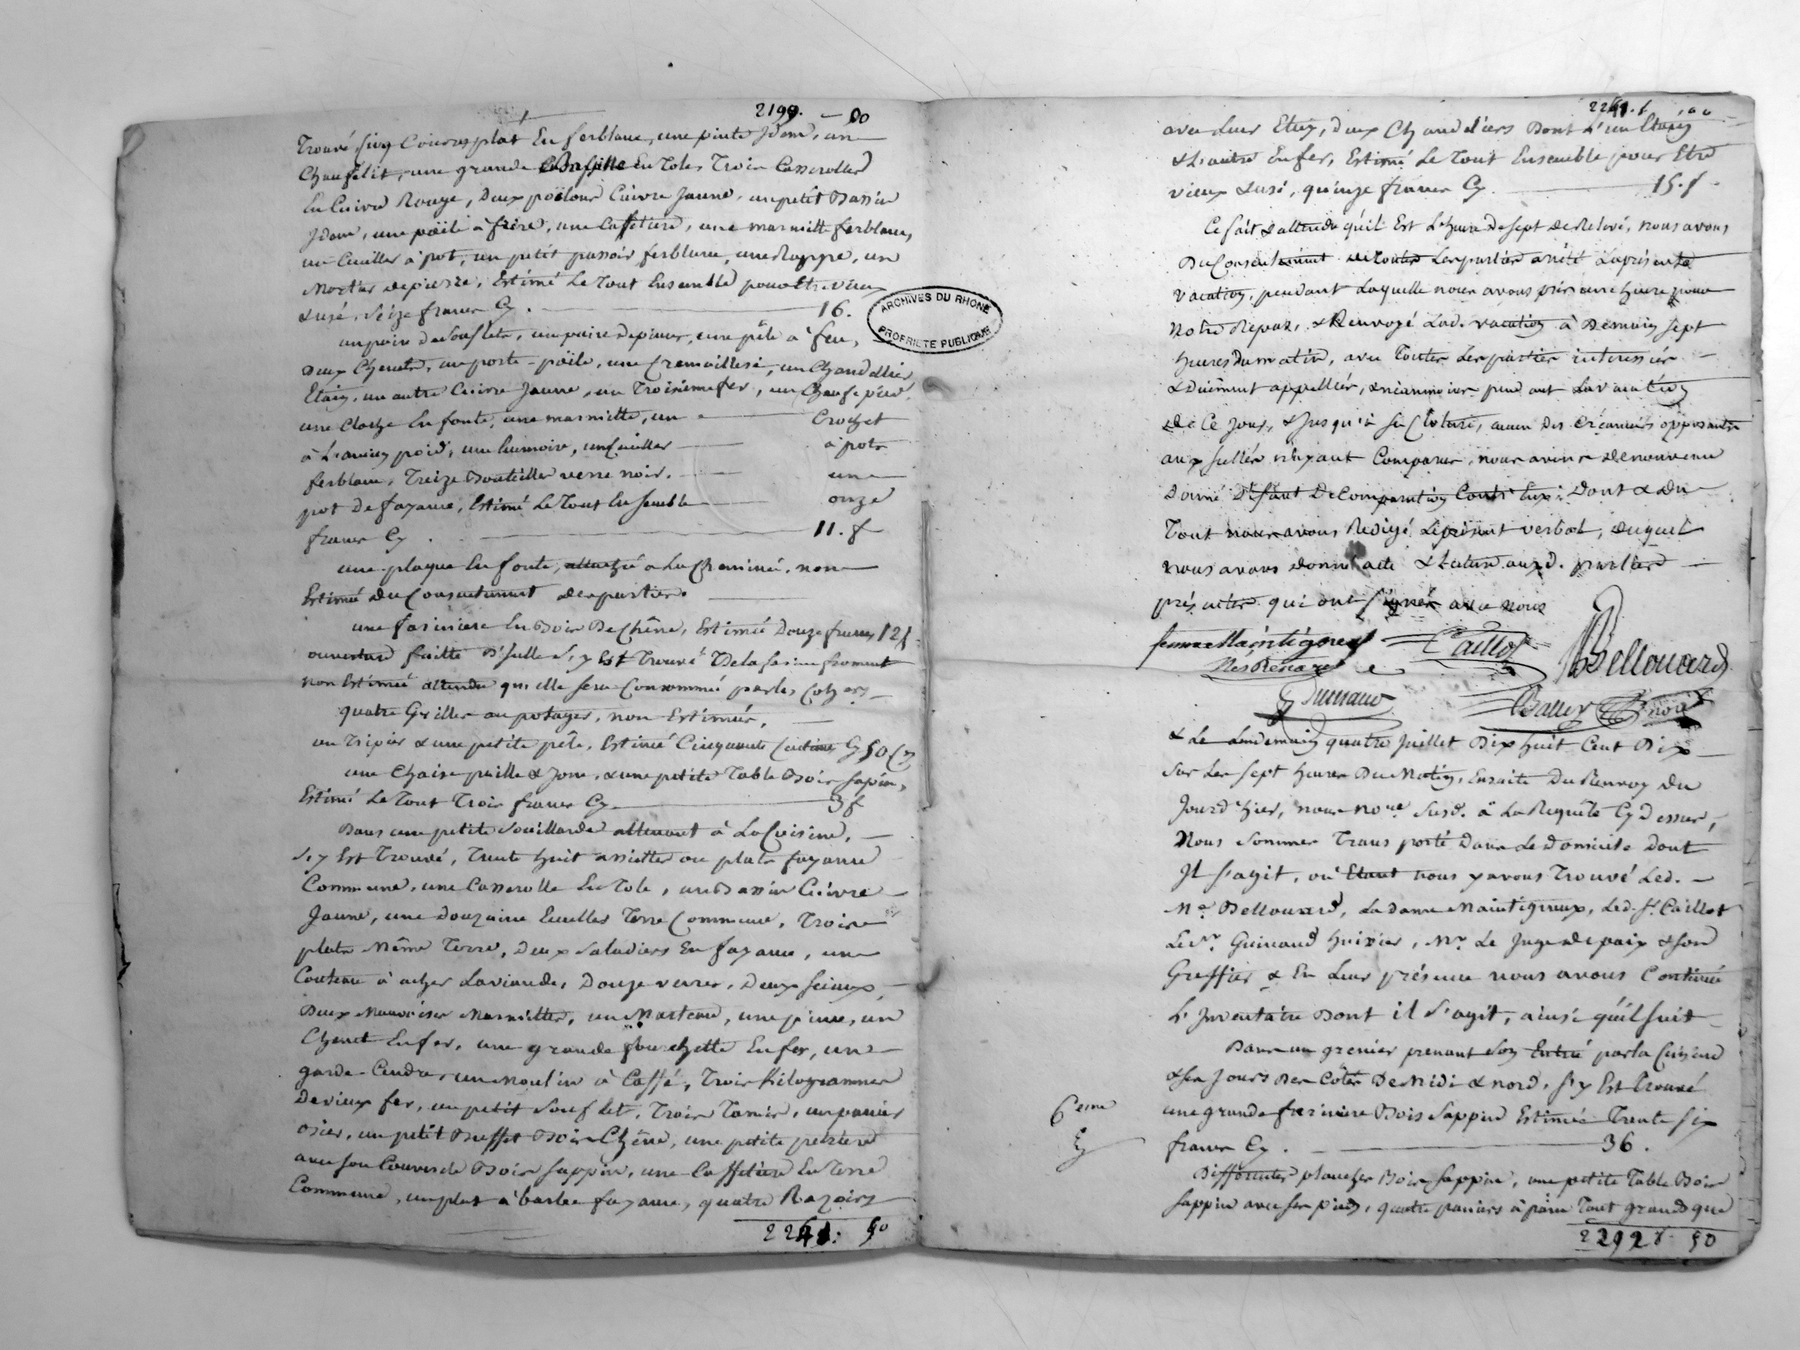 2199. — 00
Trouvé cinq Couvresplat En ferblanc, une pinte Idem, un
Chaufelit, une grande Bassine En Tole, Trois Casserolles
En Cuivre Rouge, Deux poëlons Cuivre Jaune, un petit Bassin
Idem, une poële à frire, une Caffetiere, une marmitte ferblanc,
un Cuiller à pot, un petit passoir ferblanc, une Rappe, un
Mortier de pierre, Estimé Le Tout Ensemble pour Etre vieux
& usé, Seize francs Cy . 16.
un pair de souflets, une paire de pinces, une pêle à feu,
Deux Chenets, un porte-poële, une Cremaillere, un Chandellier
Etain, un autre Cuivre Jaune, un Troisieme fer, un Chaufepied
une Cloche En fonte, une marmitte, un Crochet
à L'ancien poid, une , un Cuiller à pots
ferblanc, Treize Bouteilles verre noir, une
pot de fayance, Estimé Le Tout Ensemble onze
francs Cy . 11. f
une plaque En fonte, attachée à La Cheminée, non
Estimée du Consentement des parties.
une farinière En Bois De Chêne, Estimée Douze francs 12 f.
ouverture faitte D'Icelle S'y Est Trouvé De la farine froment
non Estimée attendu qu'elle sera Consommée par les Cohers
quatre Grilles au potager, non Estimées,
un Tripier & une petite pêle, Estimé Cinquante Centimes Cy 50 C.
une Chaise paille & Jonc, & une petite Table Bois sapin,
Estimé Le Tout Trois francs Cy 3 f
Dans une petite Souillarde attenant à La Cuisine,
S'y Est Trouvé, Trente huit assiettes ou plats fayance
Commune, une Casserolle En Tole, un Bassin Cuivre
Jaune, une Douzaine Ecuelles Terre Commune, Trois
plats Même Terre, Deux Saladiers En fayance, un
Couteau à acher La viande, Douze verres, Deux seiaux,
Deux Mauvaises Marmittes, un Marteau, une pince, un
Chenet En fer, une grande fourchette En fer, un
garde-Cendre, un Moulin à Caffé, Trois Kilogrammes
De vieux fer, un petit Souflet, Trois Tamis, un panier
osier, un petit Buffet Bois Chêne, une petite
avec son Couvercle Bois sappin, une Caffetiere En Terre
Commune, un plat à barbe fayance, quatre Razoirs
2241. 50
ARCHIVES DU RHONE
PROPRIETE PUBLIQUE
2241. f
avec Leur Etuy, Deux Chandeliers Dont L'un Etain
& L'autre En fer, Estimé Le Tout Ensemble pour Etre
vieux & usé, quinze francs Cy 15. f
Ce fait & attendu qu'il Est L'heure de sept de Relevé, nous avons
Du Consentement de Toutes Les parties arrêté La présente
vacation, pendant Laquelle nous avons pris une heure pour
Notre Repas, & Renvoyé Lad. vacation à Demain sept
heures du matin, avec Toutes Les parties interessées
& Duëment appellées, & néanmoins pendant La vacation
de Ce Jour, & Jusqu'à sa Cloture, aucun Des Créanciers opposants
aux sellés n'ayant Comparus, nous avons de nouveau
Donné Défaut De Comparution Contr'Eux; Dont & Du
Tout nous avons Redigé Le présent verbal, Duquel
nous avons donné acte & Lecture aux d. parties
présentes qui ont signés avec nous
femme Maintigneux Caillot Bellouard
Née Renard
Guinand Balley
& Le Lendemain quatre Juillet Dix huit Cent Dix
Sur Les sept heures Du Matin, Ensuite Du Renvoy du
Jourd'hier, nous No.re Susd. à La Requête Cy Dessus,
Nous Sommes Transporté Dans Le Domicile Dont
Il s'agit, où Etant nous y avons Trouvé Led.
Me. Bellouard, La Dame Maintigneux, Led. Sr. Caillot
Le Sr. Guinand huissier, Mr. Le Juge de paix & son
Greffier & En Leur présence nous avons Continué
L'Inventaire Dont il s'agit, ainsi qu'il suit
Dans un grenier prenant son Entrée par la Cuisine
& ses Jours Des Côtés De Midi & nord, S'y Est Trouvé
6eme
une grande farinière Bois Sappin Estimée Trente six
francs Cy . 36.
Differentes planches Bois Sappin, une petite Table Bois
Sappin avec ses pieds, quatre paniers à pain Tant grands que
2292 f. 50